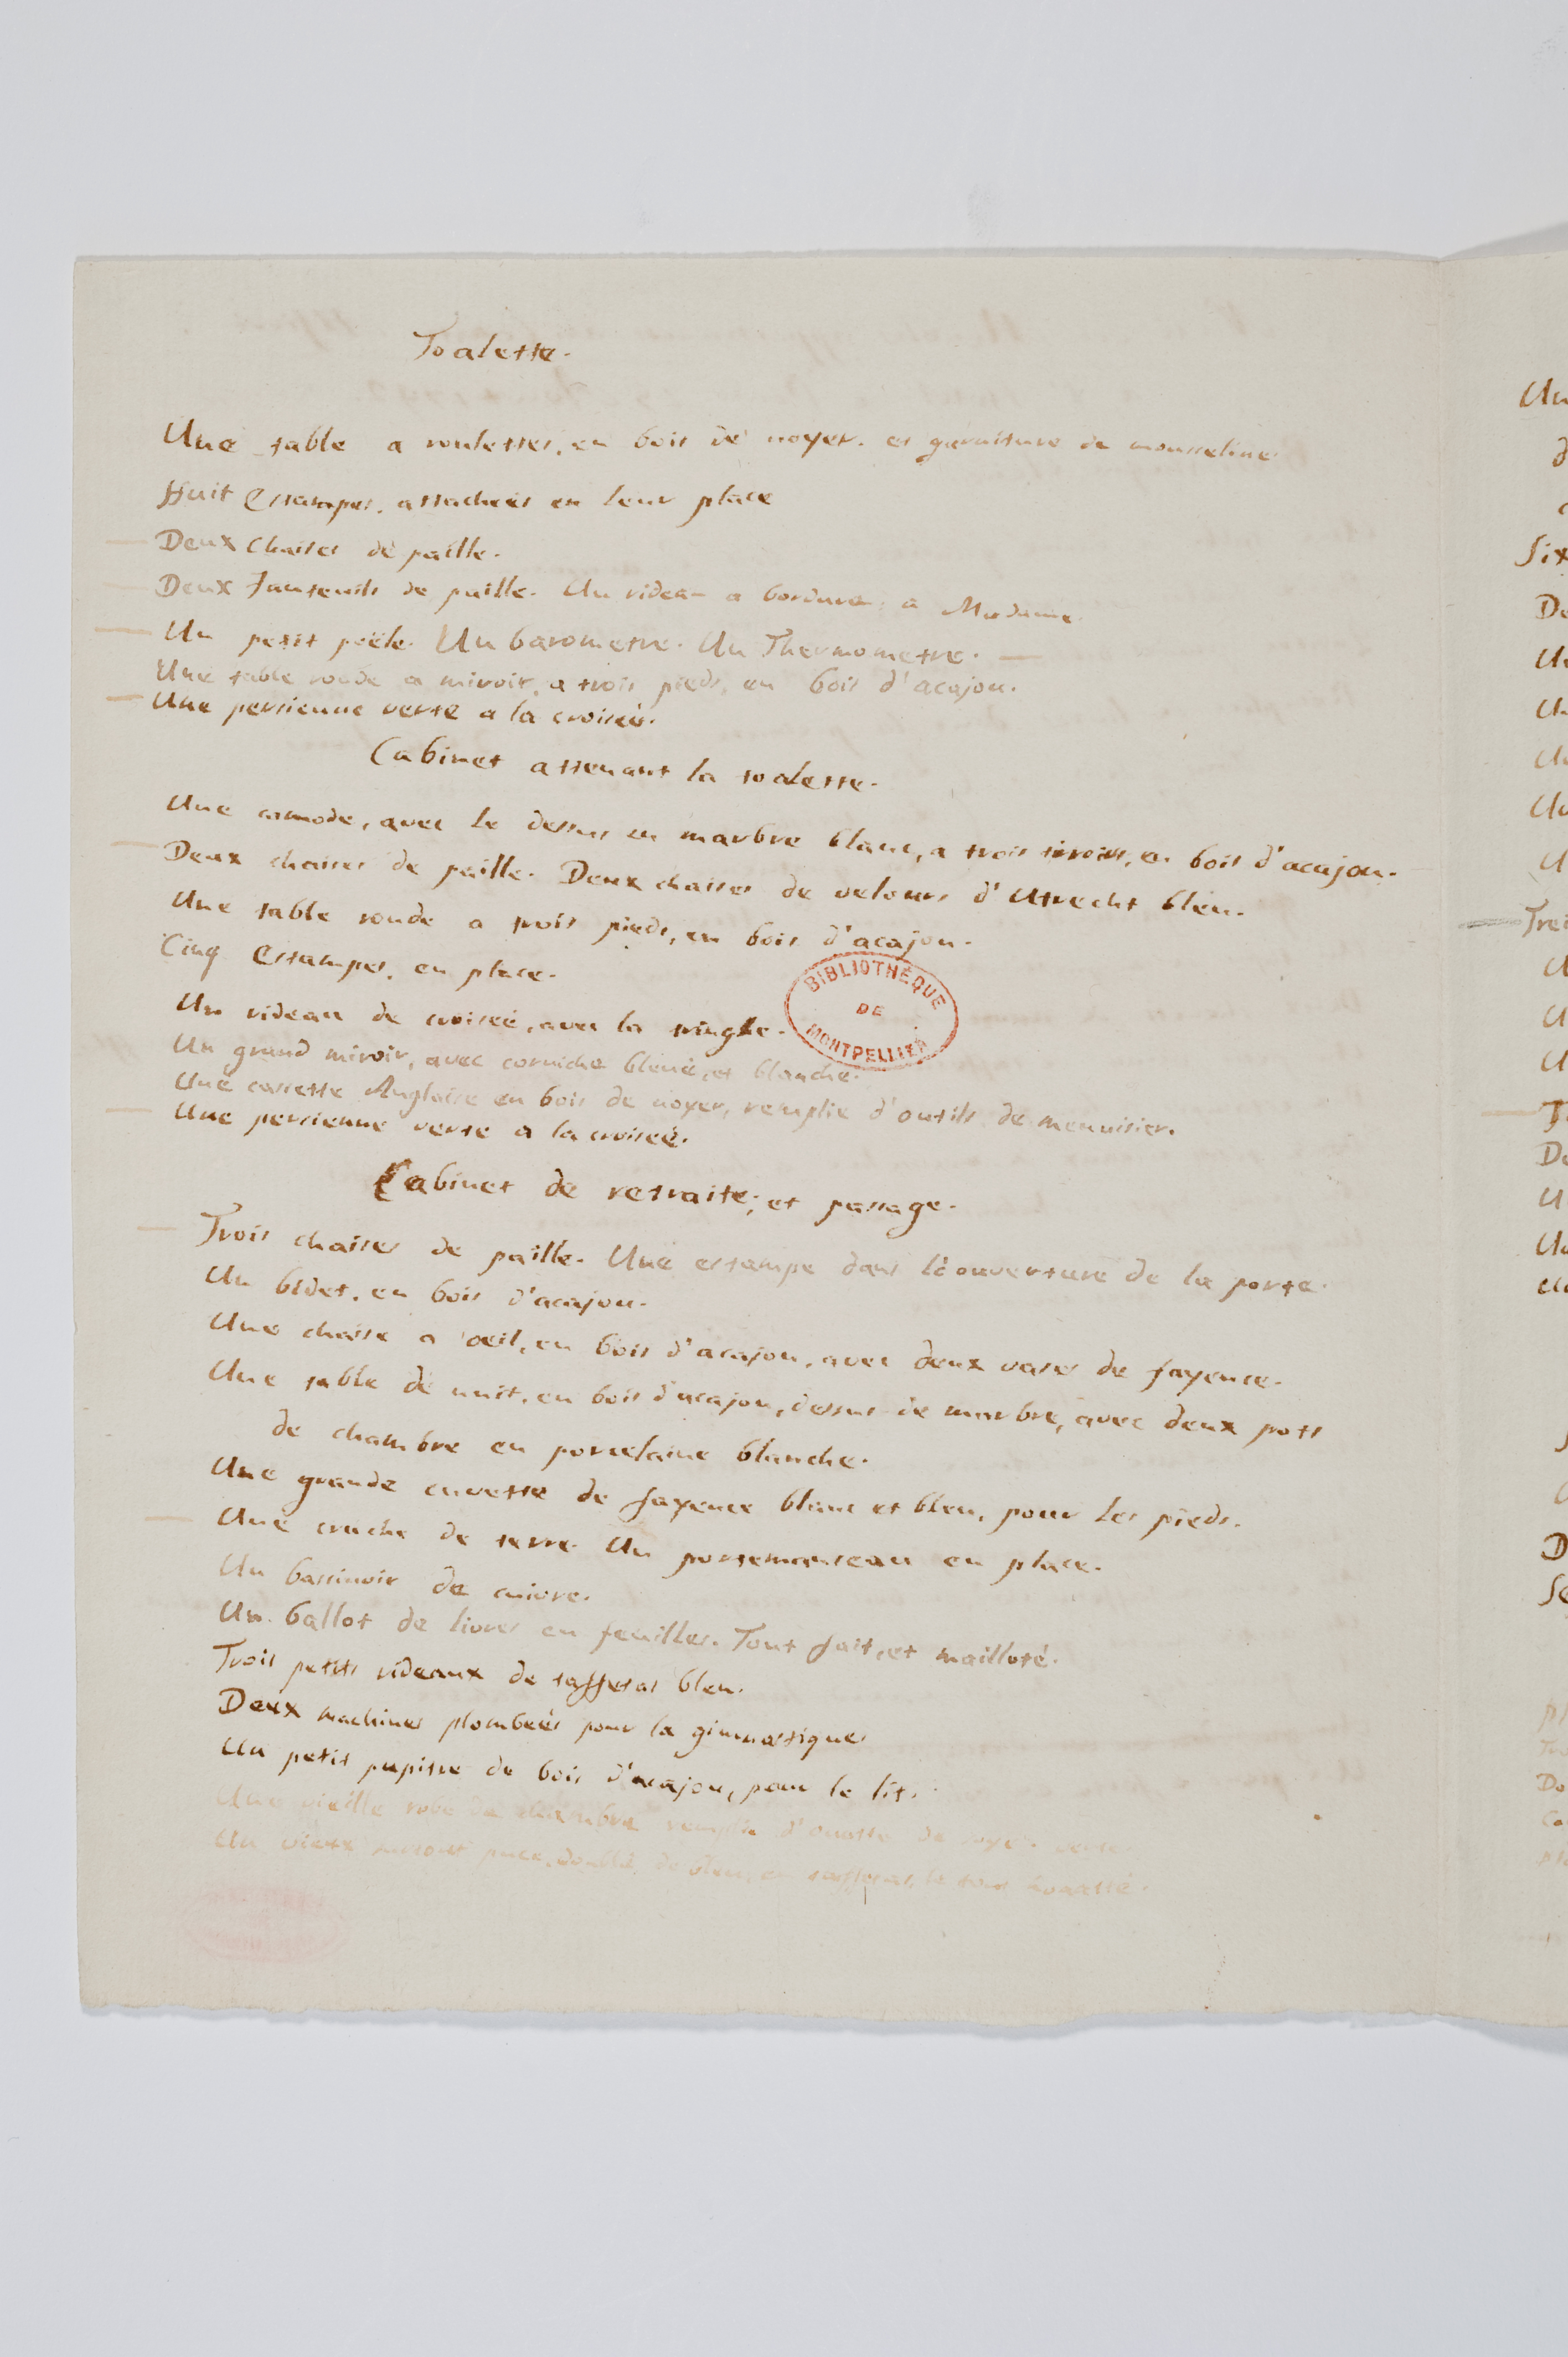 Toalette.
Une table a roulettes, en bois de noyer. et garniture de mousseline
Huit Estampes, attacheés en leur place
— Deux Chaises de paille.
— Deux fauteuils de paille. Un rideau a bordure, a Madame.
— Un petit poële. Un barometre. Un Thermometre. —
Une table ronde a miroir, a trois pieds, en bois d'acajou.
— Une persienne verte a la croiseé.
Cabinet attenant la toalette.
Une comode, avec le dessus en marbre blanc, a trois tiroirs, en bois d'acajou.
— Deux chaises de paille. Deux chaises de velours d'Utrecht bleu.
Une table ronde a trois pieds, en bois d'acajou.
Cinq Estampes, en place.
Un rideau de croiseé, avec la tringle.
Un grand miroir, avec corniche bleuë, et blanche.
Une cassette Anglaise en bois de noyer, remplie d'outils de menuisier.
— Une persienne verte a la croiseé.
BIBLIOTHÈQUE
DE
MONTPELLIER
Cabinet de retraite, et passage.
— Trois chaises de paille. Une estampe dans l'ouverture de la porte.
Un bidet, en bois d'acajou.
Une chaise a oeil, en bois d'acajou, avec deux vases de fayence.
Une table de nuit, en bois d'acajou, dessus de marbre, avec deux pots
de chambre en porcelaine blanche.
Une grande cuvette de fayence blanc et bleu, pour les pieds.
— Une cruche de terre. Un portemanteau en place.
Un bassinoir de cuivre.
Un ballot de livres en feuilles. Tout fait, et mailloté.
Trois petits rideaux de taffetas bleu.
Deux machines plombeés pour la gimnastique
Un petit pupitre de bois d'acajou, pour le lit.
Une vieille robe de chambre remplie d'ouatte de soye. verte.
Un vieux surtout puce, doublé de bleu, en taffetas, le tout
Un
Six
De